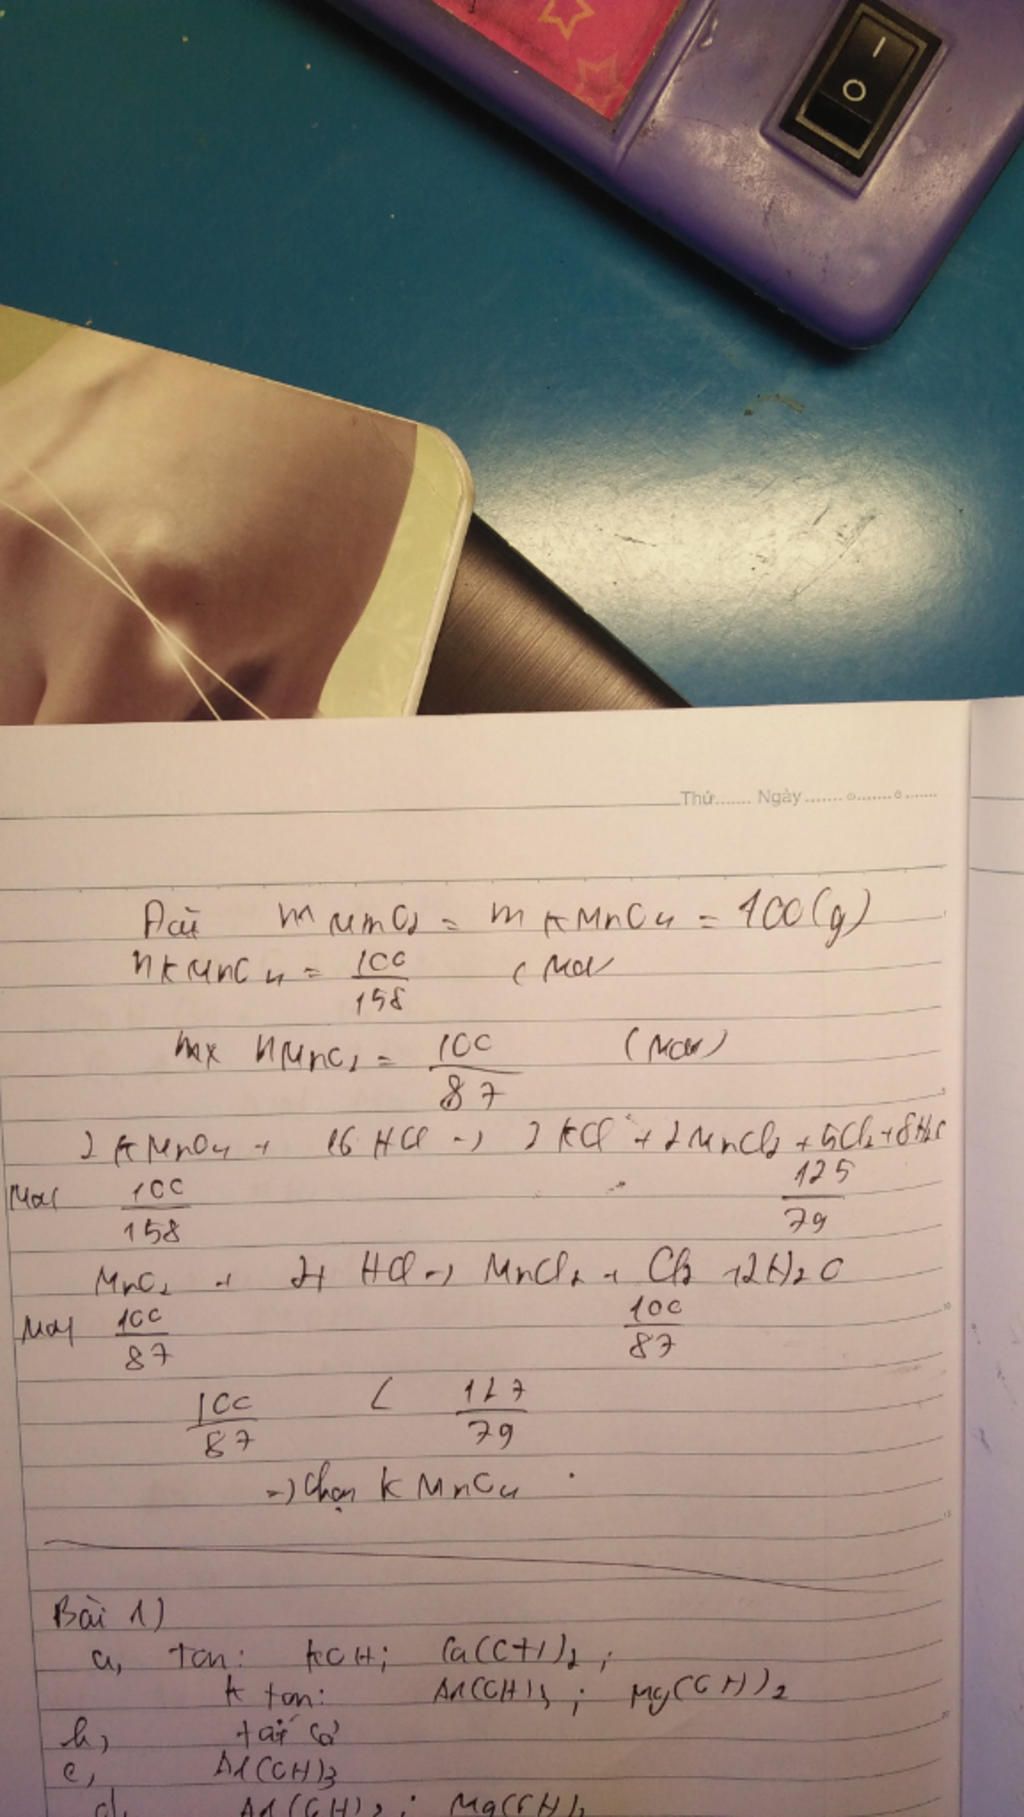 I
O
Thứ....... Ngày ....... o ....... o .......
m MnO2 = m KMnO4 = 100(g)
n KMnO4 = 100/158 (Mol
n MnO2 = 100/87 (Mol)
2 KMnO4 + 16 HCl -> 2 KCl + 2 MnCl2 + 5Cl2 + 8H2O
Mol 100/158 125/79
MnO2 + 4 HCl -> MnCl2 + Cl2 + 2H2O
Mol 100/87 100/87
100/87 < 127/79
=> Chọn KMnO4
Bài 1)
a, tan: KOH; Ca(OH)2;
K tan: Al(OH)3; Mg(OH)2
b, tất cả
c, Al(OH)3
d, Al(OH)3; Mg(OH)2